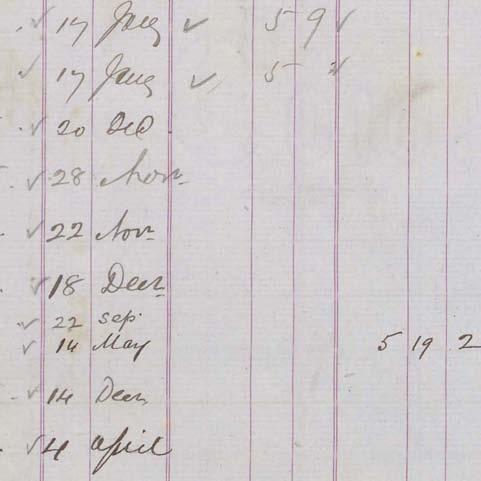 17 Jany 5 9
17 Jany 5
20 Dec
28 Novr
22 Novr
18 Decr
22 Sep
14 May 5 19 2
14 Decr
4 April